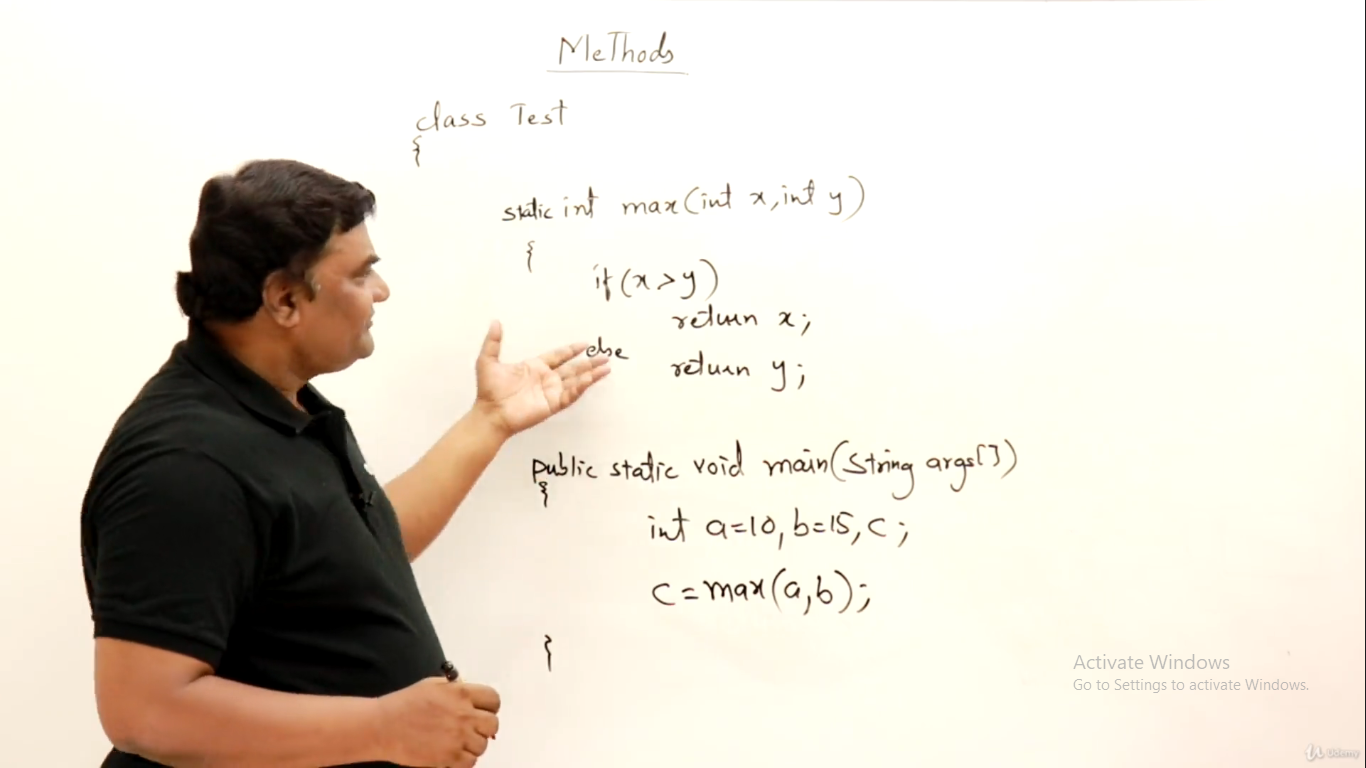 Methods
class Test
{
static int max(int x, int y)
{
if(x>y)
return x;
else
return y;
public static void main(String args[])
{
int a=10, b=15, c;
c=max(a,b);
}
Activate Windows
Go to Settings to activate Windows.
Udemy